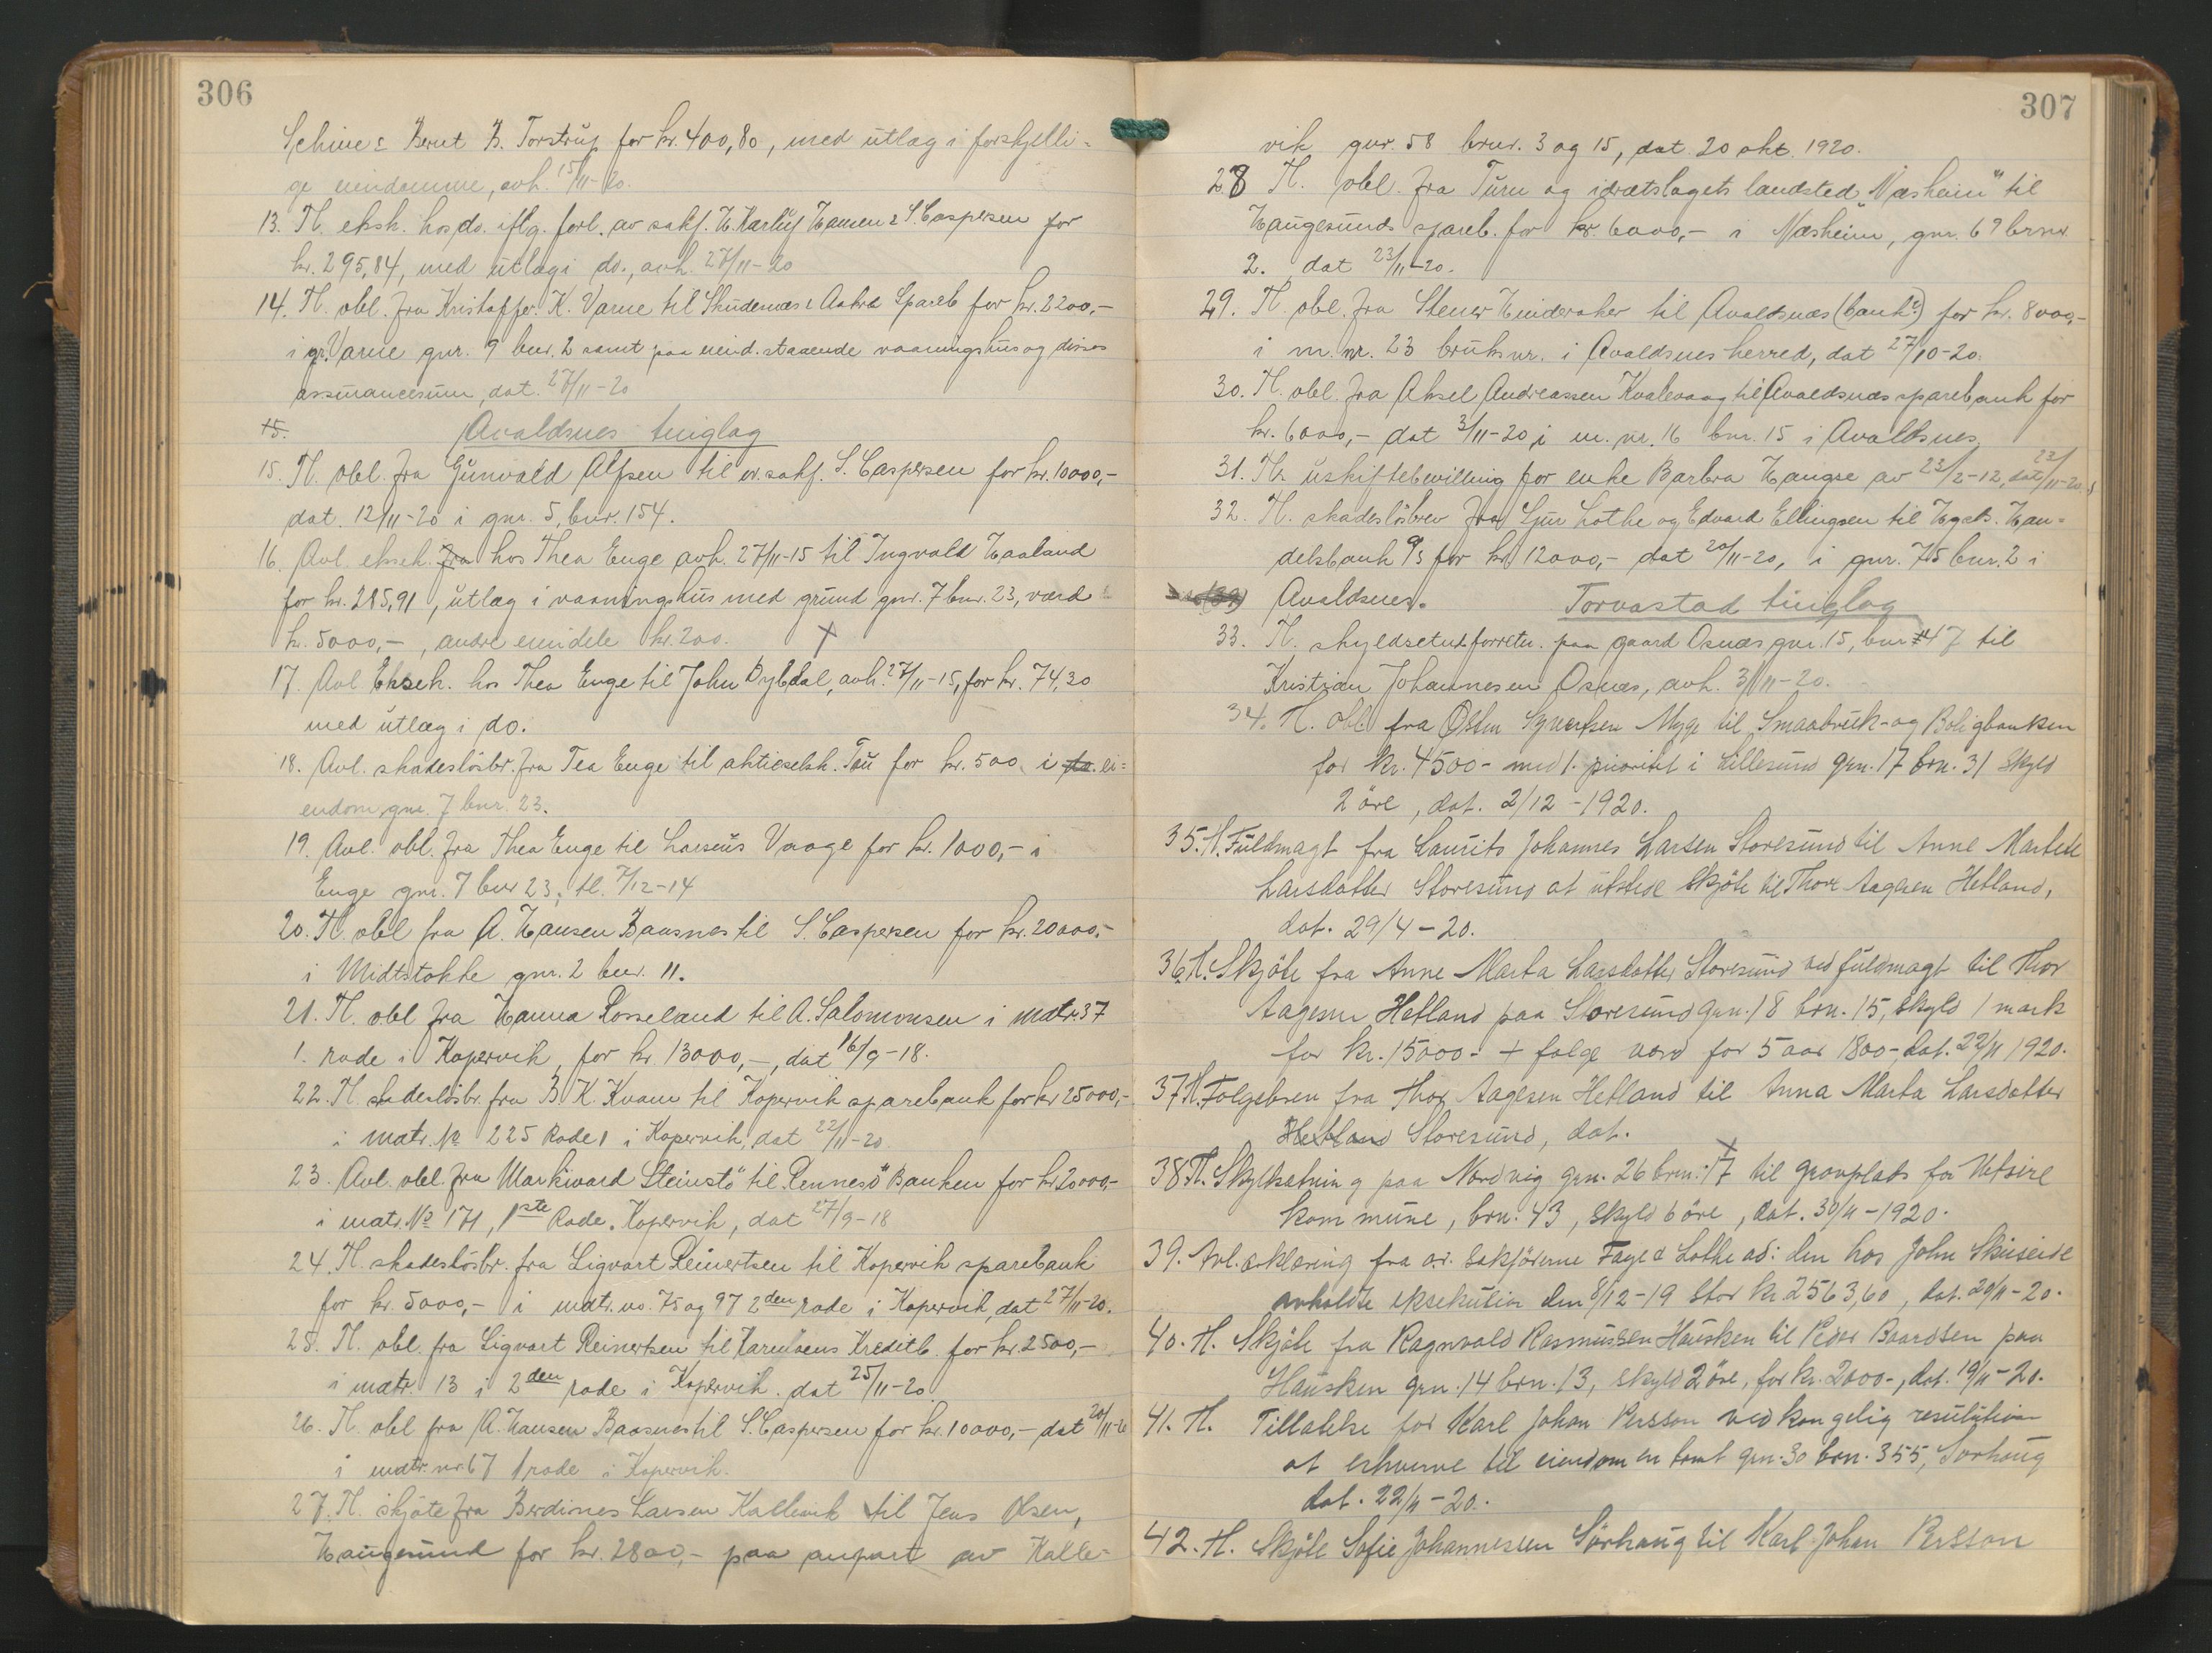 306
& Berut B. Torstrup for kr. 400,80, med utlæg i forskjelli-
ge eiendomme, avh. 15/11-20.
13. Tl. eksk. hos do. iflg. forl. av sakf. H. Karluf Hansen & S. Caspersen for
kr. 295,84, med utlæg i do., avh. 27/11-20
14. Tl. obl. fra Kristoffer K. Varne til Skudenæs & Aakra Spareb for kr. 2200,-
i gr. Varne gnr. 9 bnr. 2 samt paa eiend. staaende vaaningshus og disses
assurancesum, dat. 27/11-20
15. Avaldsnes tinglag
15. Tl. obl. fra Gunvald Alfsen til o.r. sakf. S. Caspersen for kr. 10000,-
dat. 12/11-20 i gnr. 5, bnr. 154.
16. Avl. eksek. fra hos Thea Enge avh. 27/11-15 til Ingvald Haaland
for kr. 285,91, utlæg i vaaningshus med grund gnr. 7 bnr. 23, værd
kr. 5000,-, andre eiendele kr. 200.
17. Avl. Eksek. hos Thea Enge til John Dybdal, avh. 27/11-15, for kr. 74,30
med utlæg i do.
18. Avl. skadeslösbr. fra Tea Enge til aktieselsk. Tou for kr. 500 i ei-
endom gnr. 7 bnr. 23.
19. Avl. obl. fra Thea Enge til Larsens Vaage for kr. 1000,- i
Enge gnr. 7 bnr 23, tl. 7/12-14
20. Tl. obl fra A. Hansen Baasnes til S. Caspersen for kr. 20000,-
i Midtstokke gnr. 2 bnr. 11.
21. Tl. obl fra Hanna Rosseland til A. Salomonsen i matr. 37
1. rode i Kopervik, for kr. 13000,-, dat 16/9-18.
22. Tl. skadeslösbr. fra B. K. Kvam til Kopervik sparebank for kr 25000,-
i matr. No 225 Rode 1 i Kopervik, dat 22/11-20
23. Avl. obl. fra Markward Steinstö til "Rennesö" Banken for kr 20000,-
i matr. No 171, 1ste Rode, Kopervik, dat 27/9-18
24. Tl. skadeslösbr. fra Sigvart Reinertsen til Kopervik sparebank
for kr. 5000,- i matr. no. 75 og 97 2den rode i Kopervik, dat 27/11-20.
25. Tl. obl. fra Sigvart Reinertsen til Karmöens Kreditb. for kr. 2500,-
i matr. 13 i 2den rode i Kopervik. dat 25/11-20
26. Tl. obl fra A. Hansen Baasnes til S. Caspersen for kr. 10000,- dat 20/11-20
i matr. nr 67 1 rode i Kopervik.
27. Tl. skjöte fra Berdines Larsen Kallevik til Jens Olsen,
Haugesund for kr. 2800,- paa anpart av Kalle-
307
vik gnr. 58 bnr. 3 og 15, dat. 20 okt. 1920.
28 Tl. obl. fra Turn og idrætslagets landsted "Næsheim" til
Haugesunds spareb. for kr. 6000,- i Næsheim, gnr. 69 brnr.
2. dat 23/11-20.
29. Tl. obl. fra Stener Hinderaker til Avaldsnæs (bank?) for kr. 8000,-
i m. nr. 23 bruksnr. i Avaldsnes herred, dat 27/10-20.
30. Tl. obl. fra Aksel Andreassen Kvalevaag til Avaldsnæs sparebank for
kr. 6000,- dat 3/11-20 i m. nr. 16 bnr. 15 i Avaldsnes.
31. Tl. uskiftebevilling for enke Barbra Hauge av 23/2-12, dat 23/11-20
32. Tl. skadeslösbrev fra Sjur Lothe og Edvard Ellingsen til Hgsds. Han-
delsbank A/S for kr 12000,- dat 20/11-20, i gnr. 75 bnr. 2 i
Avaldsnes. Torvastad tinglag
33. Tl. skyldsetn.forretn. paa gaard Osnes gnr. 15, bnr 47 til
Kristian Johannesen Osnes, avh. 3/11-20.
34. Tl. obl fra Østen Syvertsen Myge til Smaabruk- og Boligbanken
for kr. 4500- med 1. prioritet i Lillesund grn. 17 brn. 31 skyld
2 öre, dat. 2/12-1920.
35. Tl. Fuldmagt fra Laurits Johannes Larsen Storesund til Anne Marta
Larsdatter Storesund at utstede skjöte til Thor Aagesen Hetland,
dat. 29/4-20.
36 Tl. Skjöte fra Anne Marta Larsdatter Storesund ved fuldmagt til Thor
Aagesen Hetland paa Storesund grn. 18 brn. 15, skyld 1 mark
for kr. 15000- + folge værd for 5 aar 1800-, dat. 22/11 1920.
37 Tl. Folgebrev fra Thor Aagesen Hetland til Anna Marta Larsdatter
Hetland Storesund, dat.
38 Tl. Skyldsetning paa Nordvig grn. 26 brn. 17 til gravplats for Utsire
kommune, brn. 43, skyld 6 öre, dat. 30/11-1920.
39. Avl. erklæring fra o.r. sakförerne Faye & Lothe ad: den hos John Skuseide
avholdte eksekution den 8/12-19 stor kr. 2563,60, dat. 29/11-20.
40. Tl. Skjöte fra Ragnvald Rasmussen Hausken til Peder Baardsen paa
Hausken grn. 14 brn. 13, skyld 2 öre, for kr. 2000-, dat. 19/11-20.
41. Tl. Tillatelse for Karl Johan Persson ved kongelig resulution
at erhverve til eiendom en tomt grn. 30 brn. 355, Sörhaug
dat. 22/11-20.
42. Tl. Skjöte Sofie Johannessen Sörhaug til Karl Johan Persson